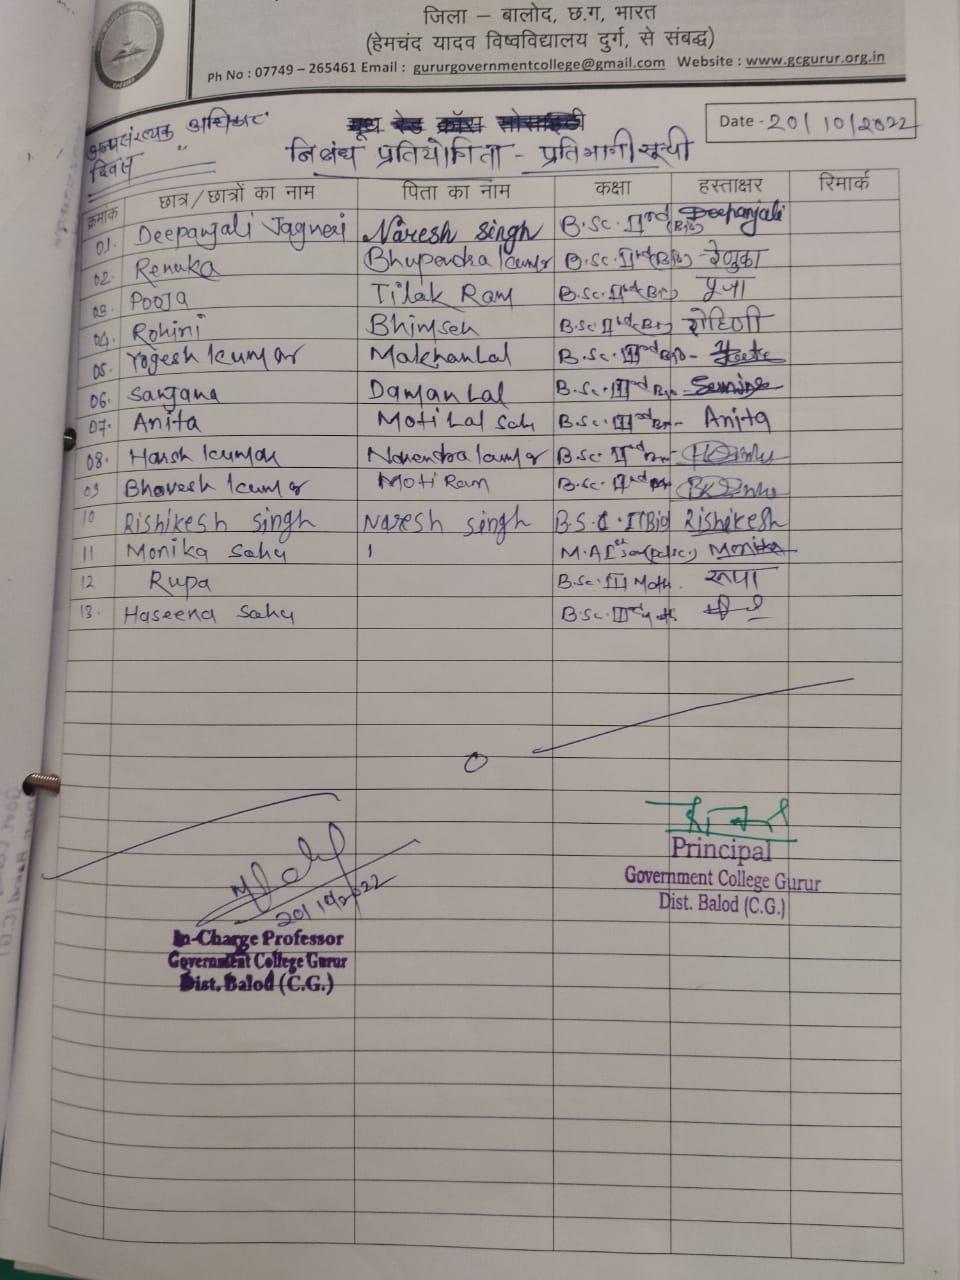 जिला – बालोद, छ.ग, भारत
(हेमचंद यादव विश्वविद्यालय दुर्ग, से संबद्ध)
Ph No : 07749 – 265461 Email : gururgovernmentcollege@gmail.com Website : www.gcgurur.org.in
अल्पसंख्यक अधिकार
दिवस
यूथ रेड क्रॉस सोसाइटी
Date - 20/10/2022
निबंध प्रतियोगिता - प्रतिभागी सूची
क्रमांक छात्र/छात्रों का नाम पिता का नाम कक्षा हस्ताक्षर रिमार्क
01. Deepanjali Naresh Singh B.Sc. IInd Deepanjali
02. Renuka Bhupendra kumar B.Sc. IInd (Bio) रेणुका
03. Pooja Tilak Ram B.Sc. IInd (Bio) पूजा
04. Rohini Bhimsen B.Sc. IInd (Bio) रोहिणी
05. Yogesh kumar Makhanlal B.Sc.
06. Sanjana Daman Lal B.Sc.
07. Anita Moti Lal B.Sc. Anita
08. Harsh kumar Narendra kumar B.Sc. IInd
09 Bhavesh kumar Moti Ram B.Sc. IInd
10 Rishikesh singh Naresh singh B.S.C. I (Bio) Rishikesh
11 Monika Sahu M.A Ist sem Monika
12 Rupa B.Sc. III Math. रूपा
13. Haseena Sahu B.Sc.
20/10/2022
In-Charge Professor
Government College Gurur
Dist. Balod (C.G.)
Principal
Government College Gurur
Dist. Balod (C.G.)